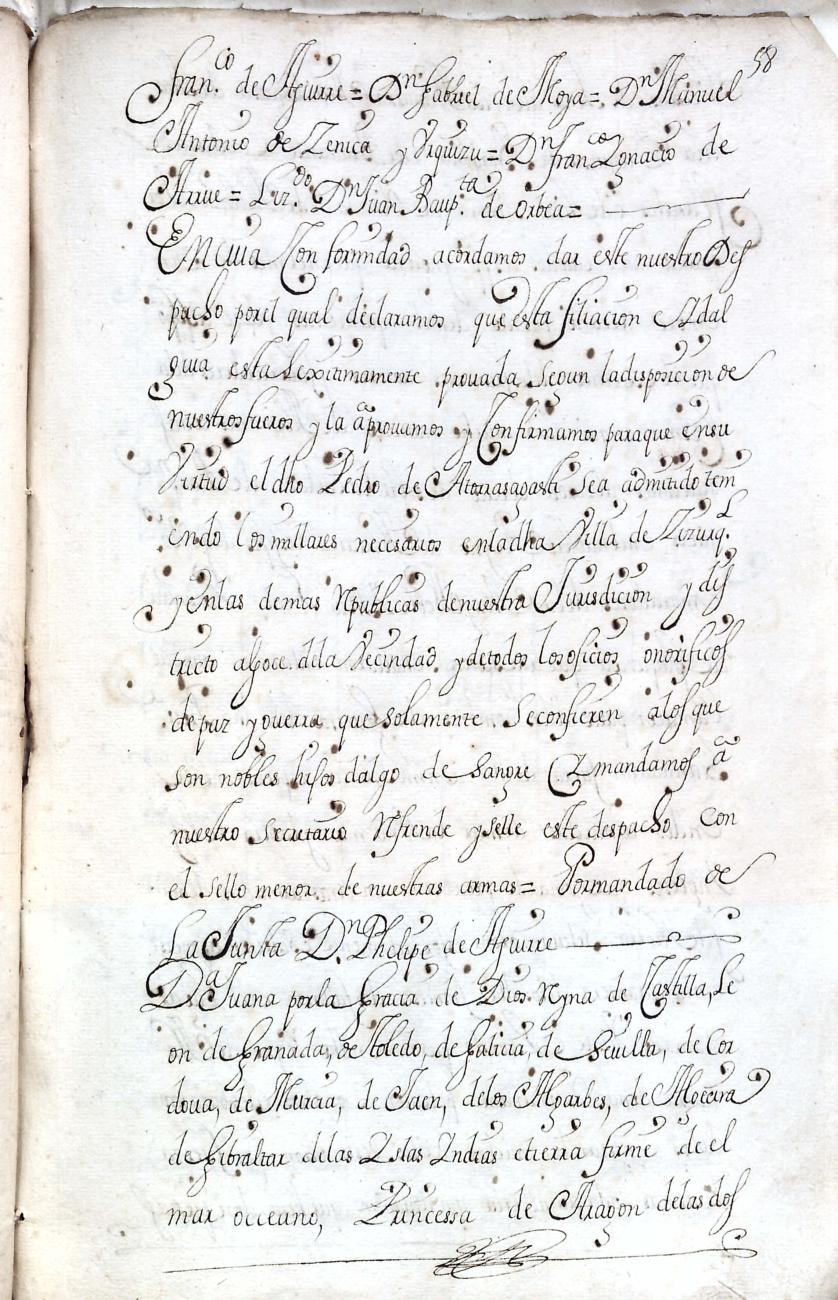 58
Fran.co de Aguirre = Dn Gabriel de Moya = Dn Manuel
Antonio de Zenica y Urquizu = Dn Fran.co Ygnacio de
Arrue = Liz.do Dn Juan Baup.ta de Orbea =
En cuia Conformidad acordamos dar este nuestro Des
pacho por il qual declaramos que esta filiacion e Ydal
guia esta Lexitimamente prouada segun la disposicion de
nuestros fueros y la aprouamos y Confirmamos para que en su
Virtud el dho Pedro de Atorrasagasti sea admitido teni
endo los millares necesarios en la dha Villa de Zizurq.l
y en las demas Republicas de nuestra Jurisdicion y dis
tricto al goce de la Vecindad y de todos los oficios onorificos
de paz y guerra que solamente se confieren a los que
son nobles hijos dalgo de sangre Y mandamos a
nuestro secretario Refrende y selle este despacho con
el sello menor de nuestras armas = Por mandado de
La Junta Dn Phelipe de Aguirre
Da Juana por la gracia de Dios Reyna de Castilla, Le
on de Granada, de Toledo, de Galicia, de Seuilla, de Cor
doua, de Murcia, de Jaen, de los Algarbes, de Algecira
de Gibraltar de las Yslas Yndias e tierra firme de el
mar occeano, Princessa de Aragon de las dos